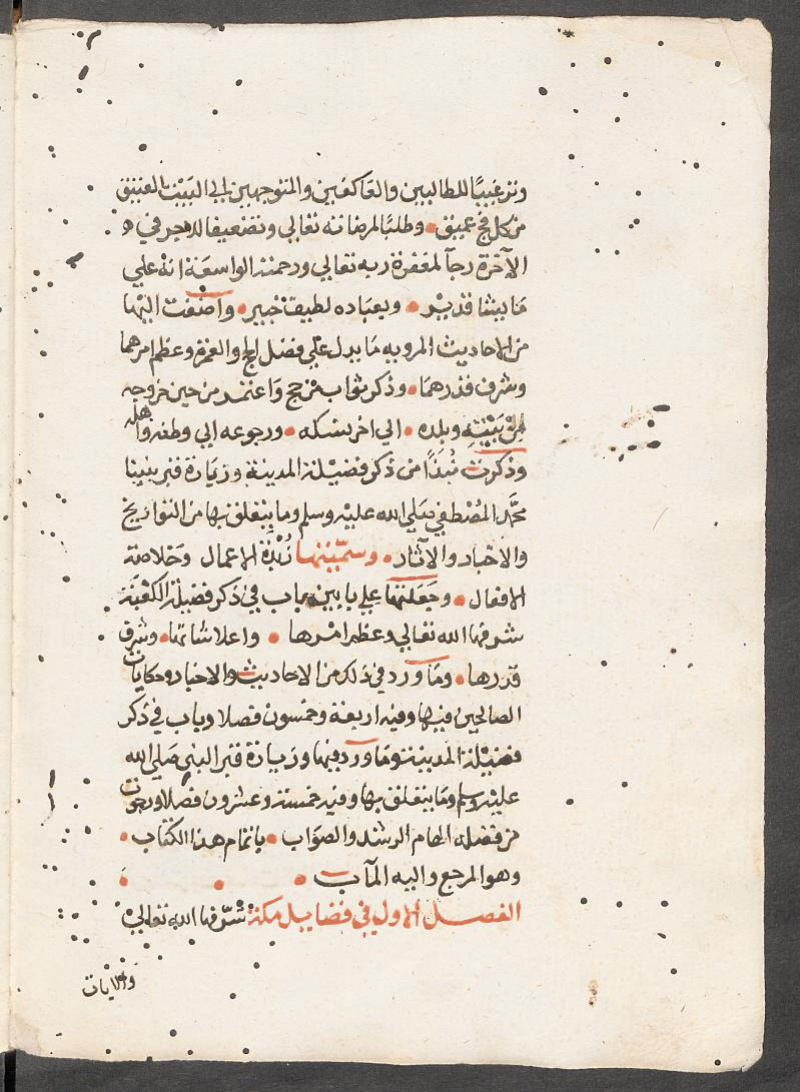 وترغيبًا للطالبين والعاكفين والمتوجهين الى البيت العتيق
من كل فج عميق وطلبًا لمرضاته تعالى وتضعيفا للاجر في
الآخرة رجآ لمغفرة ربه تعالى ورحمته الواسعة انه على
ما يشا قدير وبعباده لطيف خبير واضفت اليها
من الاحاديث المرويه ما يدل على فضل الحج والعمرة وعظم امرهما
وشرف قدرهما وذكر ثواب من حج واعتمر من حين خروجه
من بيته وبلده الى اخر نسكه ورجوعه الى وطنه واهله
وذكرت نُبذًا من ذكر فضيلة المدينة وزيارة قبر نبينا
محمد المصطفى صلى الله عليه وسلم وما يتعلق بها من التواريخ
والاخبار والآثار وسمّيتها زُبْدَة الاعمال وخلاصة
الافعال وجعلتها على بابين باب في ذكر فضيلة الكعبة
شرفها الله تعالى وعظم امرها واعلا شانها وشرف
قدرها وما ورد في ذلك من الاحاديث والاخبار وحكايات
الصالحين فيها وفيه اربعة وخمسون فصلا وباب في ذكر
فضيلة المدينة وما ورد فيها وزيارة قبر النبي صلى الله
عليه وسلم وما يتعلق بها وفيه خمسة وعشرون فصلا ورجوت
من فضله الهام الرشد والصواب باتمام هذا الكتاب
وهو المرجع واليه المآب
الفصل الاول في فضايل مكة شرّفها الله تعالى
والايات